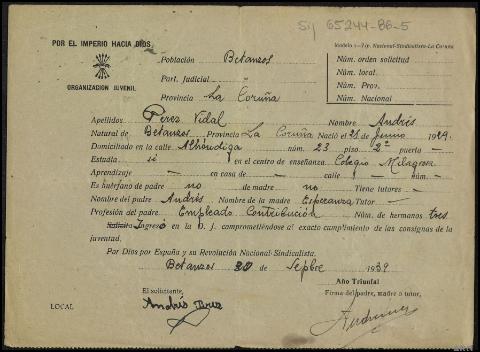 Sig 65244-86-5
POR EL IMPERIO HACIA DIOS
ORGANIZACION JUVENIL
Modelo 1-Tip. Nacional-Sindicalista-La Coruña
Población Betanzos
Part. Judicial "
Provincia La Coruña
Núm. orden solicitud
Núm. local.
Núm. Prov.
Núm. Nacional
Apellidos Perez Vidal Nombre Andrés
Natural de Betanzos Provincia La Coruña Nació el 28 Junio 1929.
Domiciliado en la calle Alhóndiga núm. 23 piso 2º puerta —
Estudia sí en el centro de enseñanza Colegio Milagrosa
Aprendizaje — en casa de — calle — núm. —
Es huérfano de padre no de madre no Tiene tutores —
Nombre del padre Andrés Nombre de la madre Esperanza Tutor —
Profesión del padre Empleado Contribución Núm. de hermanos tres
Solicito Ingresó en la O. J. comprometiéndose al exacto cumplimiento de las consignas de la
juventud.
Por Dios por España y su Revolución Nacional-Sindicalista.
Betanzos 20 de Sepbre 1939
Año Triunfal
El solicitante,
Firma del padre, madre o tutor,
LOCAL
Andrés Perez